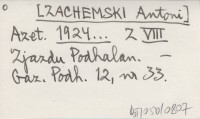 [ZACHEMSKI Antoni]
Azet. 1924... Z VIII
Zjazdu Podhalan. –
Gaz. Podh. 12, nr 33.